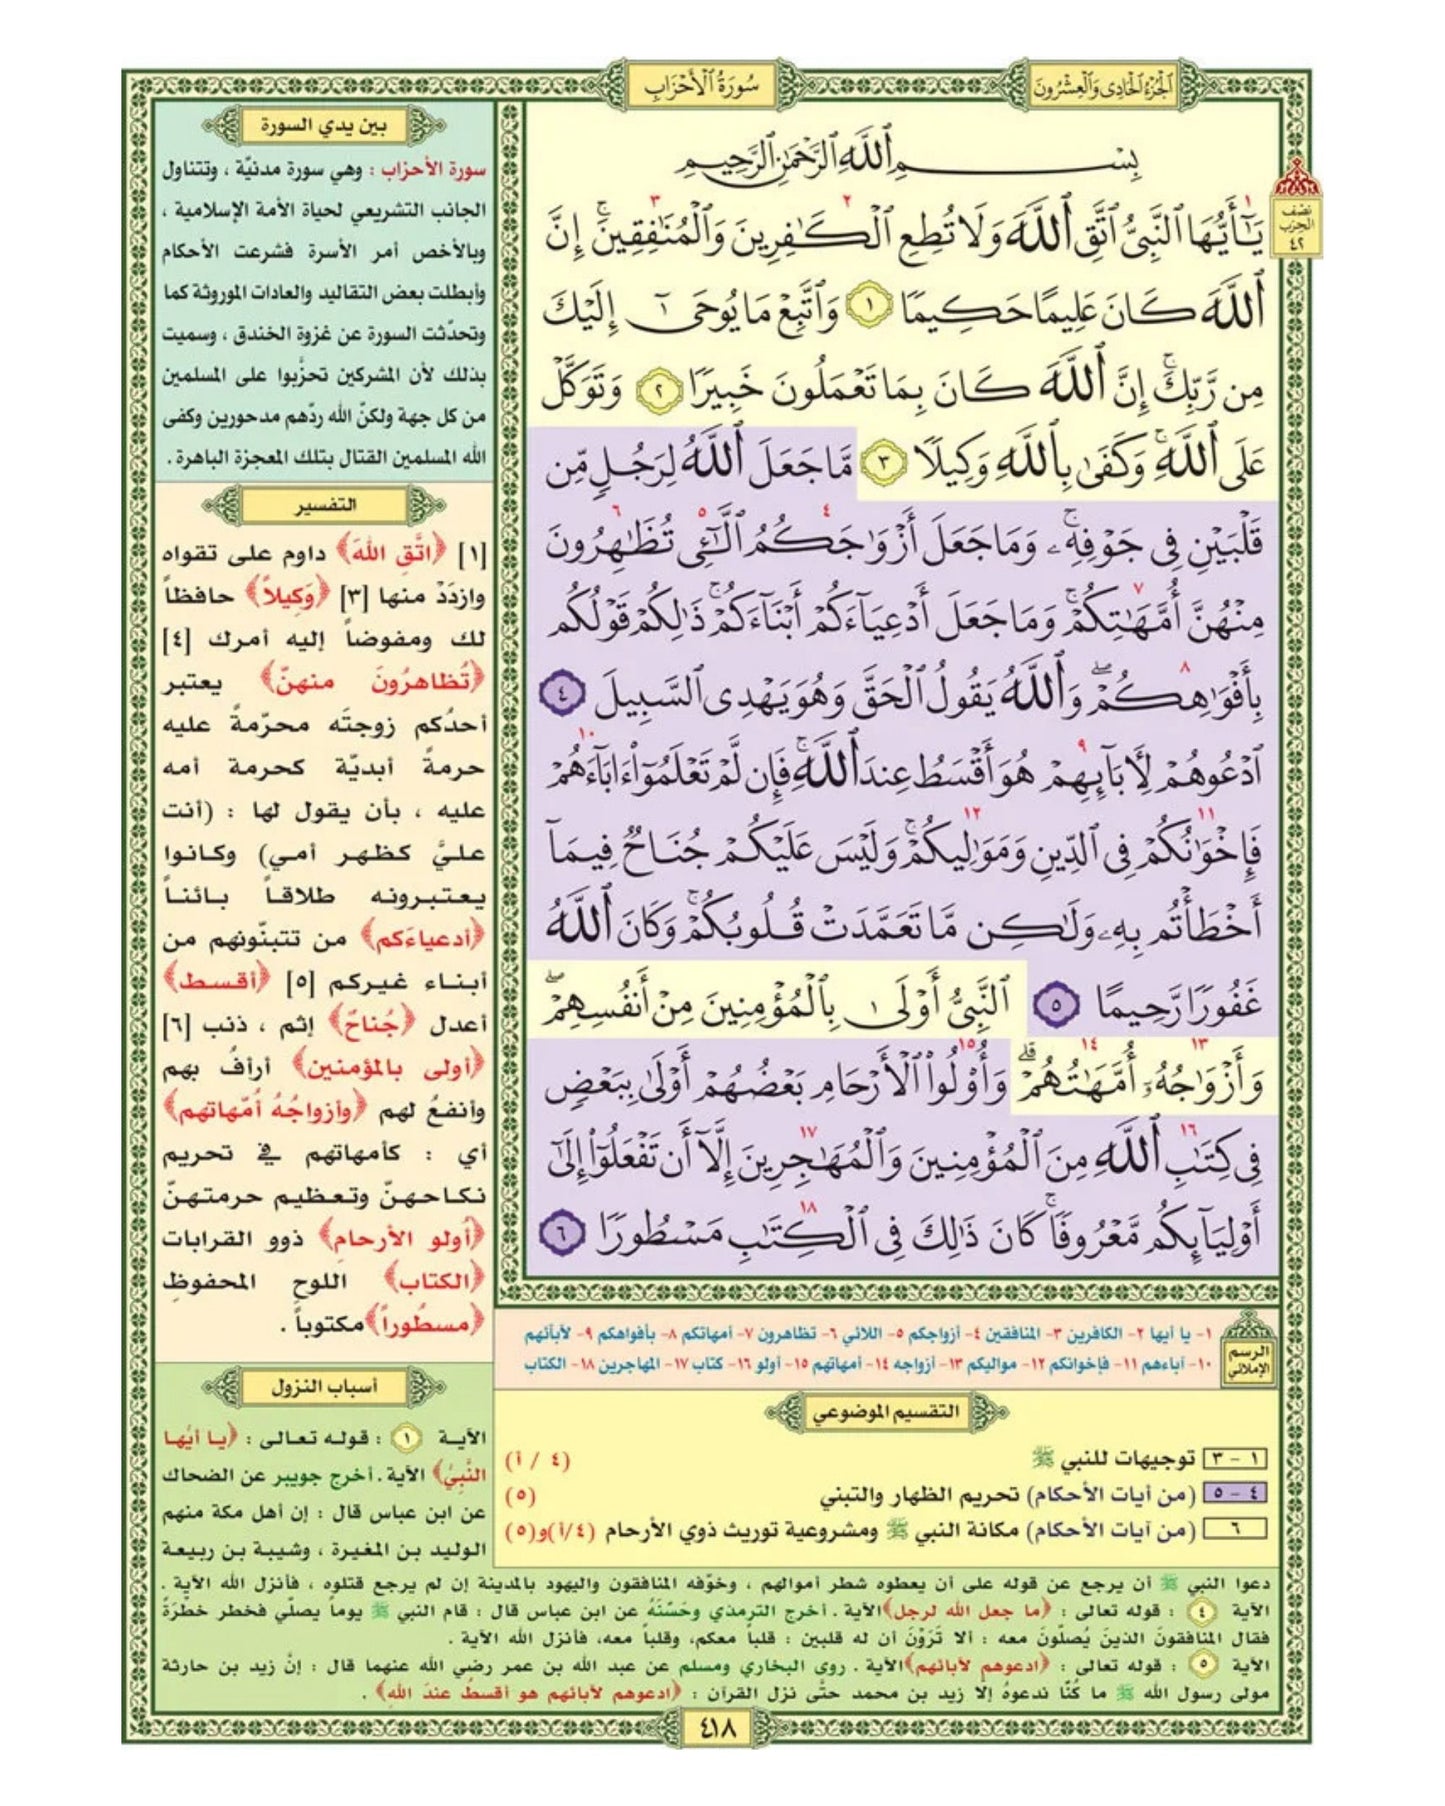 الجزء الحادي والعشرون
سورة الأحزاب
نصف
الحزب
٤٢
بِسْمِ ٱللَّهِ ٱلرَّحْمَٰنِ ٱلرَّحِيمِ
يَٰٓأَيُّهَا ٱلنَّبِىُّ ٱتَّقِ ٱللَّهَ وَلَا تُطِعِ ٱلْكَٰفِرِينَ وَٱلْمُنَٰفِقِينَۚ إِنَّ
ٱللَّهَ كَانَ عَلِيمًا حَكِيمًا ١ وَٱتَّبِعْ مَا يُوحَىٰٓ إِلَيْكَ
مِن رَّبِّكَۚ إِنَّ ٱللَّهَ كَانَ بِمَا تَعْمَلُونَ خَبِيرًا ٢ وَتَوَكَّلْ
عَلَى ٱللَّهِۚ وَكَفَىٰ بِٱللَّهِ وَكِيلًا ٣ مَّا جَعَلَ ٱللَّهُ لِرَجُلٍ مِّن
قَلْبَيْنِ فِى جَوْفِهِۦۚ وَمَا جَعَلَ أَزْوَٰجَكُمُ ٱلَّٰٓـِٔى تُظَٰهِرُونَ
مِنْهُنَّ أُمَّهَٰتِكُمْۚ وَمَا جَعَلَ أَدْعِيَآءَكُمْ أَبْنَآءَكُمْۚ ذَٰلِكُمْ قَوْلُكُم
بِأَفْوَٰهِكُمْۖ وَٱللَّهُ يَقُولُ ٱلْحَقَّ وَهُوَ يَهْدِى ٱلسَّبِيلَ ٤
ٱدْعُوهُمْ لِأَبَآئِهِمْ هُوَ أَقْسَطُ عِندَ ٱللَّهِۚ فَإِن لَّمْ تَعْلَمُوٓا۟ ءَابَآءَهُمْ
فَإِخْوَٰنُكُمْ فِى ٱلدِّينِ وَمَوَٰلِيكُمْۚ وَلَيْسَ عَلَيْكُمْ جُنَاحٌ فِيمَآ
أَخْطَأْتُم بِهِۦ وَلَٰكِن مَّا تَعَمَّدَتْ قُلُوبُكُمْۚ وَكَانَ ٱللَّهُ
غَفُورًا رَّحِيمًا ٥ ٱلنَّبِىُّ أَوْلَىٰ بِٱلْمُؤْمِنِينَ مِنْ أَنفُسِهِمْۖ
وَأَزْوَٰجُهُۥٓ أُمَّهَٰتُهُمْۗ وَأُو۟لُوا۟ ٱلْأَرْحَامِ بَعْضُهُمْ أَوْلَىٰ بِبَعْضٍ
فِى كِتَٰبِ ٱللَّهِ مِنَ ٱلْمُؤْمِنِينَ وَٱلْمُهَٰجِرِينَ إِلَّآ أَن تَفْعَلُوٓا۟ إِلَىٰٓ
أَوْلِيَآئِكُم مَّعْرُوفًاۚ كَانَ ذَٰلِكَ فِى ٱلْكِتَٰبِ مَسْطُورًا ٦
الرسم
الإملائي
١- يا أيها ٢- الكافرين ٣- المنافقين ٤- أزواجكم ٥- اللائي ٦- تظاهرون ٧- أمهاتكم ٨- بأفواهكم ٩- لآبائهم
١٠- آباءهم ١١- فإخوانكم ١٢- مواليكم ١٣- أزواجه ١٤- أمهاتهم ١٥- أولو ١٦- كتاب ١٧- المهاجرين ١٨- الكتاب
التقسيم الموضوعي
١ - ٣ توجيهات للنبي ﷺ (٤ / أ)
٤ - ٥ (من آيات الأحكام) تحريم الظهار والتبني (٥)
٦ (من آيات الأحكام) مكانة النبي ﷺ ومشروعية توريث ذوي الأرحام (٤/أ)و(٥)
بين يدي السورة
سورة الأحزاب : وهي سورة مدنيّة ، وتتناول
الجانب التشريعي لحياة الأمة الإسلامية ،
وبالأخص أمر الأسرة فشرعت الأحكام
وأبطلت بعض التقاليد والعادات الموروثة كما
وتحدّثت السورة عن غزوة الخندق ، وسميت
بذلك لأن المشركين تحزّبوا على المسلمين
من كل جهة ولكنّ الله ردّهم مدحورين وكفى
الله المسلمين القتال بتلك المعجزة الباهرة .
التفسير
[١] ﴿اتَّقِ اللهَ﴾ داوم على تقواه
وازدَدْ منها [٣] ﴿وَكِيلاً﴾ حافظاً
لك ومفوضاً إليه أمرك [٤]
﴿تُظاهرُونَ منهنّ﴾ يعتبر
أحدُكم زوجتَه محرّمةً عليه
حرمةً أبديّة كحرمة أمه
عليه ، بأن يقول لها : (أنت
عليَّ كظهر أمي) وكانوا
يعتبرونه طلاقاً بائناً
﴿أدعياءَكم﴾ من تتبنّونهم من
أبناء غيركم [٥] ﴿أقسط﴾
أعدل ﴿جُناحٌ﴾ إثم ، ذنب [٦]
﴿أولى بالمؤمنين﴾ أرأفُ بهم
وأنفعُ لهم ﴿وأزواجُهُ أمّهاتهم﴾
أي : كأمهاتهم في تحريم
نكاحهنّ وتعظيم حرمتهنّ
﴿أولو الأرحام﴾ ذوو القرابات
﴿الكتاب﴾ اللوح المحفوظِ
﴿مسطُوراً﴾ مكتوباً .
أسباب النزول
الآية ١ : قوله تعالى : ﴿يا أيُها
النَّبيُّ﴾ الآية . أخرج جويبر عن الضحاك
عن ابن عباس قال : إن أهل مكة منهم
الوليد بن المغيرة ، وشيبة بن ربيعة
دعوا النبي ﷺ أن يرجع عن قوله على أن يعطوه شطر أموالهم ، وخوّفه المنافقون واليهود بالمدينة إن لم يرجع قتلوه ، فأنزل الله الآية .
الآية ٤ : قوله تعالى : ﴿ما جعل الله لرجل﴾ الآية . أخرج الترمذي وحَسَّنَهُ عن ابن عباس قال : قام النبي ﷺ يوماً يصلّي فخطر خطْرَةً
فقال المنافقونَ الذينَ يُصلّونَ معه : ألا تَرَوْنَ أن له قلبين : قلباً معكم، وقلباً معه، فأنزل الله الآية .
الآية ٥ : قوله تعالى : ﴿ادعوهم لآبائهم﴾ الآية . روى البخاري ومسلم عن عبد الله بن عمر رضي الله عنهما قال : إنَّ زيد بن حارثة
مولى رسول الله ﷺ ما كُنّا ندعوهُ إلا زيد بن محمد حتّى نزل القرآن : ﴿ادعوهم لآبائهم هو أقسطُ عندَ اللهِ﴾ .
٤١٨